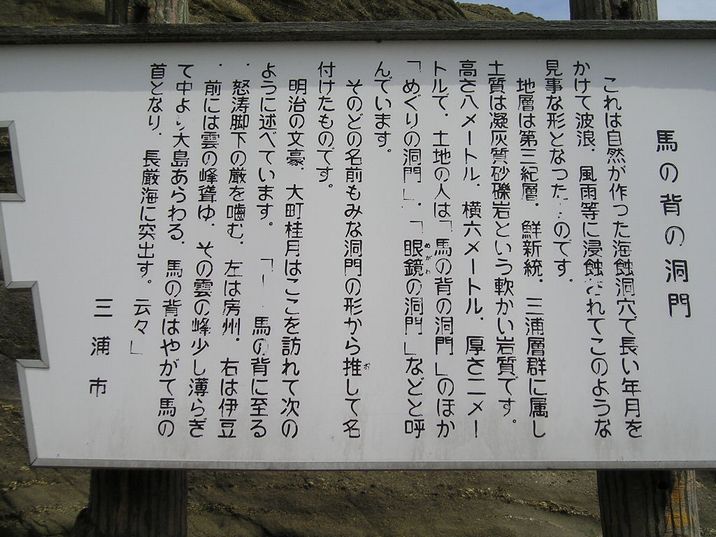 馬の背の洞門
これは自然が作った海蝕洞穴で長い年月を
かけて波浪、風雨等に浸蝕されてこのような
見事な形となったものです。
地層は第三紀層、鮮新統、三浦層群に属し
土質は凝灰質砂礫岩という軟かい岩質です。
高さ八メートル、横六メートル、厚さ二メー
トルで、土地の人は「馬の背の洞門」のほか
「めぐりの洞門」、「眼鏡の洞門」などと呼
めがね
んでいます。
そのどの名前もみな洞門の形から推して名
お
付けたものです。
明治の文豪、大町桂月はここを訪れて次の
ように述べています。「馬の背に至る
、怒涛脚下の巌を噛む、左は房州、右は伊豆
、前には雲の峰聳ゆ、その雲の峰少し薄らぎ
て中より大島あらわる、馬の背はやがて馬の
首となり、長巌海に突出す。云々」
三浦市